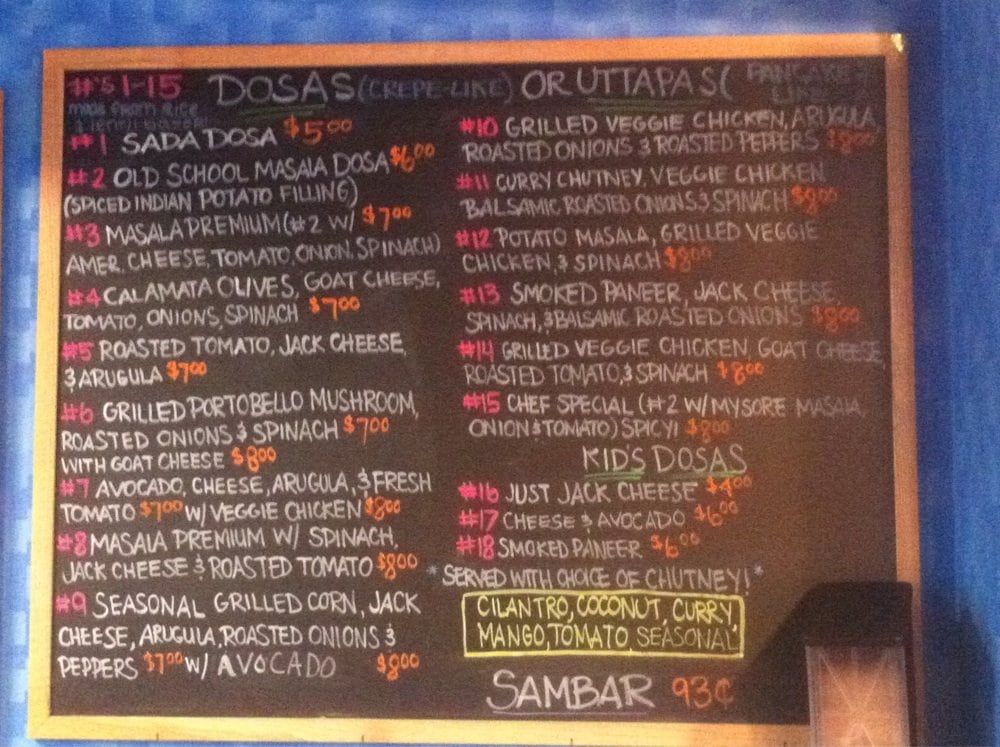 #'s 1-15 DOSAS (CREPE-LIKE) OR UTTAPAS (PANCAKE-LIKE
made from rice
#1 SADA DOSA $5.00
#2 OLD SCHOOL MASALA DOSA $6.00
(SPICED INDIAN POTATO FILLING)
#3 MASALA PREMIUM (#2 W/ $7.00
AMER. CHEESE, TOMATO, ONION, SPINACH)
#4 CALAMATA OLIVES, GOAT CHEESE,
TOMATO, ONIONS, SPINACH $7.00
#5 ROASTED TOMATO, JACK CHEESE,
& ARUGULA $7.00
#6 GRILLED PORTOBELLO MUSHROOM,
ROASTED ONIONS & SPINACH $7.00
WITH GOAT CHEESE $8.00
#7 AVOCADO, CHEESE, ARUGULA, & FRESH
TOMATO $7.00 W/ VEGGIE CHICKEN $8.00
#8 MASALA PREMIUM W/ SPINACH,
JACK CHEESE & ROASTED TOMATO $8.00
#9 SEASONAL GRILLED CORN, JACK
CHEESE, ARUGULA, ROASTED ONIONS &
PEPPERS $7.00 W/ AVOCADO $8.00
#10 GRILLED VEGGIE CHICKEN, ARUGULA
ROASTED ONIONS & ROASTED PEPPERS $8.00
#11 CURRY CHUTNEY, VEGGIE CHICKEN
BALSAMIC ROASTED ONIONS & SPINACH $8.00
#12 POTATO MASALA, GRILLED VEGGIE
CHICKEN, & SPINACH $8.00
#13 SMOKED PANEER, JACK CHEESE,
SPINACH, & BALSAMIC ROASTED ONIONS $8.00
#14 GRILLED VEGGIE CHICKEN, GOAT CHEESE,
ROASTED TOMATO, & SPINACH $8.00
#15 CHEF SPECIAL (#2 W/ MYSORE MASALA,
ONION & TOMATO) SPICY! $8.00
KIDS DOSAS
#16 JUST JACK CHEESE $4.00
#17 CHEESE & AVOCADO $6.00
#18 SMOKED PANEER $6.00
*SERVED WITH CHOICE OF CHUTNEY!*
CILANTRO, COCONUT, CURRY,
MANGO, TOMATO, SEASONAL
SAMBAR 93¢